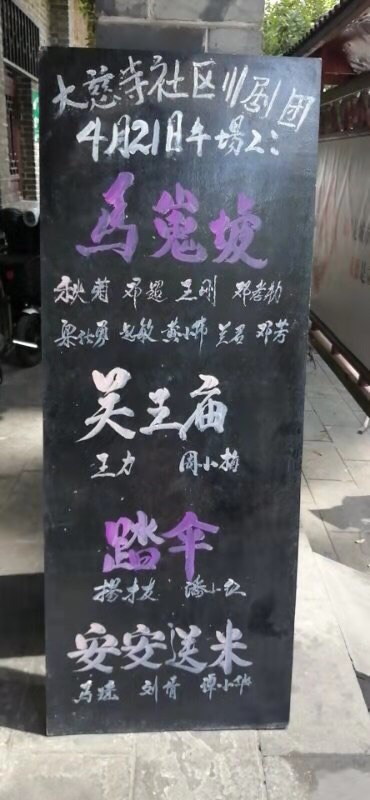 大慈寺社区川剧团
4月21日午場2:
馬嵬坡
秋菊 邓超 王刚 邓孝勤
梁仕勇 赵敏 黄小伟 兰君 邓芳
关王庙
王力 周小梅
踏伞
楊才友 潘小红
安安送米
马瑶 刘倩 谭小华